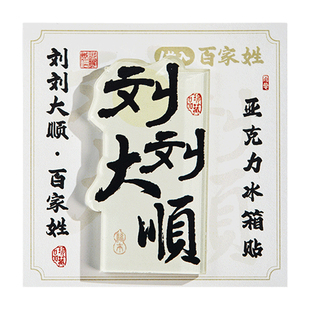 百家姓
刘刘大顺·百家姓
刘刘
大順
亚克力冰箱贴